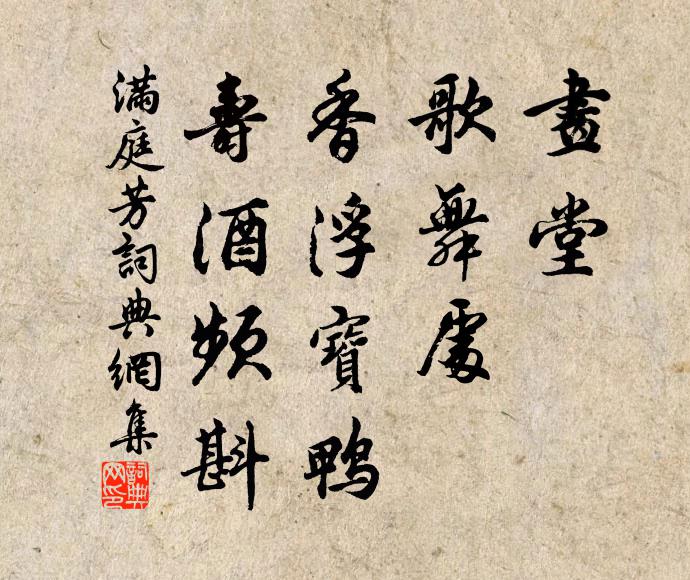 畫堂
歌舞處
香浮寶鴨
壽酒頻斟
滿庭芳詞典網集
詞典網印